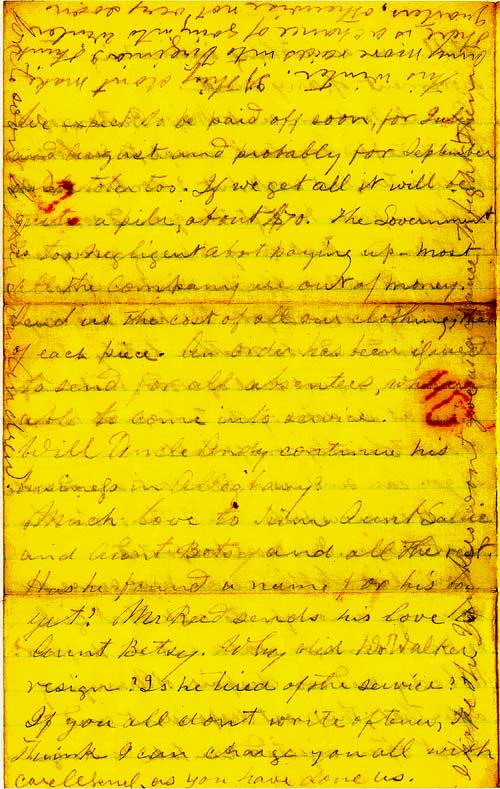 We expect to be paid off soon, for July
and August and probably for September
and October too. If we get all it will be
quite a pile, about $70. The Government
is too negligent about paying up. Most
all the Company are out of money.
Send us the cost of all our clothing, that
of each piece. An order has been issued
to send for all absentees, who are
able to come into service.
Will Uncle Andy continue his
business in Alleghany?
Much love to him Aunt Sallie
and Aunt Betsy and all the rest.
Has he found a name for his
yet? Mr Reed sends his love
Aunt Betsy. Why did Dr Walker
resign? Is he tired of the service?
If you all dont write oftener, I
think I can charge you all with
as you have done us.
this winter. If they dont make
any more raids into Virginia, I think
there is a chance of going into winter
quarters, otherwise not very soon